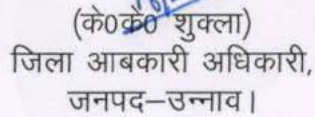 (के0के0 शुक्ला)
जिला आबकारी अधिकारी,
जनपद–उन्नाव।